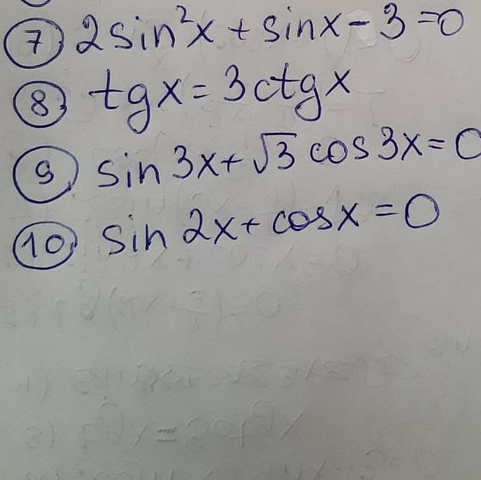 7 2sin²x + sinx - 3 = 0
8 tgx = 3ctgx
9 sin 3x + √3 cos 3x = 0
10 sin 2x + cosx = 0